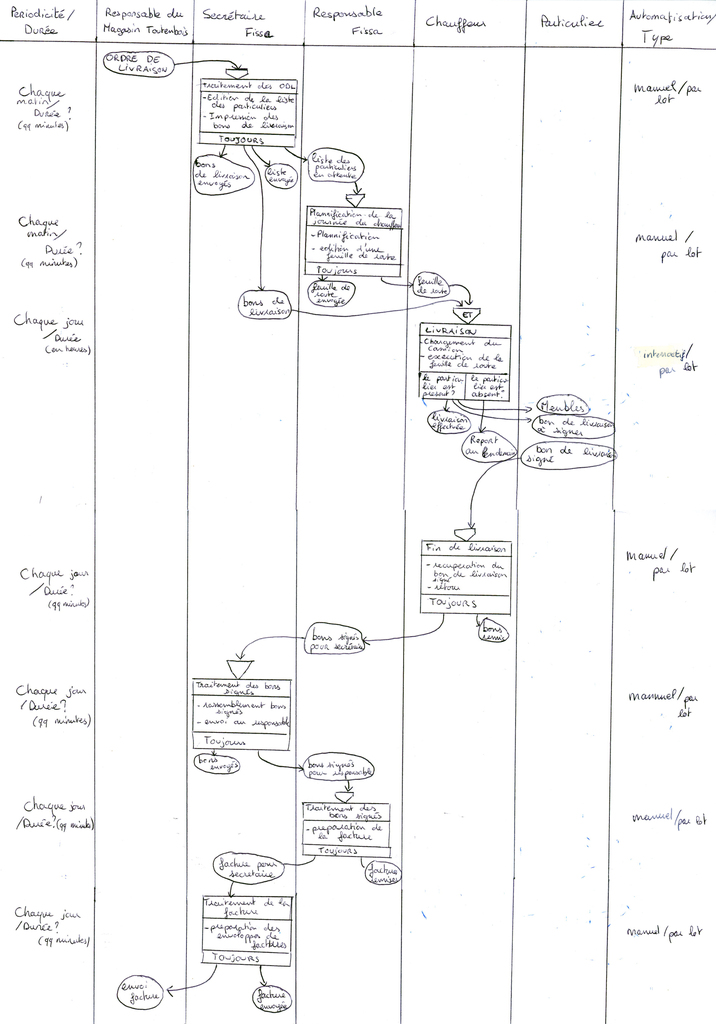 Périodicité/
Durée
Responsable du
Magasin Toutenbois
Secrétaire
Fissa
Responsable
Fissa
Chauffeur
Particulier
Automatisation/
Type
ORDRE DE
LIVRAISON
Chaque
matin/
Durée ?
(99 minutes)
Traitement des ODL
- Edition de la liste
des particuliers
- Impression des
bons de livraison
TOUJOURS
manuel/par
lot
bons
de livraison
envoyés
liste
envoyée
liste des
particuliers
en attente
Chaque
matin/
Durée ?
(99 minutes)
Plannification de la
journée du chauffeur
- Plannification
- edition d'une
feuille de route
Toujours
manuel/
par lot
feuille de
route envoyée
feuille
de route
bons de
livraison
ET
Chaque jour
/Durée
(en heures)
LIVRAISON
- Chargement du
camion
- execution de la
feuille de route
le particu
lier est
présent ?
le particu
lier est
absent ?
interactif/
par lot
livraison
effectuée
Report
au lendemain
Meubles
bon de livraison
à signer
bon de livraison
signé
Chaque jour
/Durée ?
(99 minutes)
Fin de livraison
- recuperation du
bon de livraison
signé
- retour
TOUJOURS
Manuel/
par lot
bons
remis
bons signés
pour secrétaire
Chaque jour
/Durée ?
(99 minutes)
Traitement des bons
signés
- rassemblement bons
signés
- envoi au responsable
Toujours
manuel/par
lot
bons
envoyés
bons signés
pour responsable
Chaque jour
/Durée ? (99 minutes)
Traitement des
bons signés
- preparation de
la facture
TOUJOURS
manuel/par lot
facture pour
secretaire
facture
remise
Chaque jour
/Durée ?
(99 minutes)
Traitement de la
facture
- preparation des
enveloppes de
factures
TOUJOURS
manuel/par lot
envoi
facture
facture
envoyée